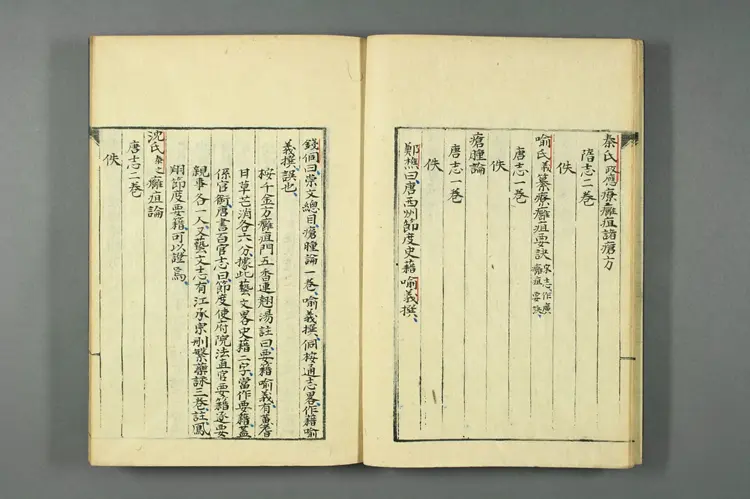 秦氏政應療癰疽諸瘡方
隋志二卷
佚
喻氏義纂療癰疽要訣宋志作廣癰疽要訣
唐志一卷
佚
瘡腫論
唐志一卷
佚
鄭樵曰唐西州節度史籍喻義撰
錢侗曰崇文總目瘡腫論一卷喻義撰侗桉通志畧作籍喻
義撰誤也
桉千金方癰疽門五香連翹湯註曰要籍喻義有黃耆
日草芒消各六分據此藝文畧史籍二字當作要籍蓋
係官銜唐書百官志曰節度使府院法直官要籍逐要
親事各一人又藝文志有江承宗刪繁藥詠三卷註鳳
翔節度要籍可以證焉
沈氏泰之癰疽論
唐志二卷
佚